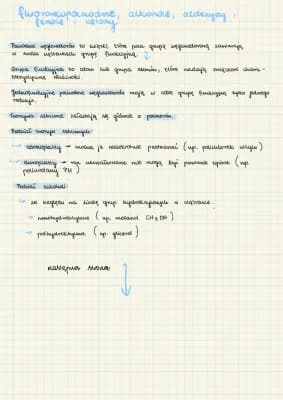 fluorowcopochodne, alkohole, aldehydy,
fenole i ketony
Pochodne węglowodorów to związki, które poza grupą węglowodorową zawierają
w swojej cząsteczce grupę funkcyjną.
Grupa funkcyjna to atom lub grupa atomów, które nadają związkom charak-
terystyczne właściwości
Jednofunkcyjne pochodne węglowodorów mają w sobie grupę funkcyjną tylko jednego
rodzaju.
Tworzywa sztuczne składają się głównie z polimerów.
Podział tworzyw sztucznych:
→ termoplasty → można je wielokrotnie przetwarzać (np. polichlorek winylu)
→ duroplasty → raz ukształtowane nie mogą być ponownie topione (np.
poliuretany PU)
Podział alkoholi:
→ ze względu na liczbę grup hydroksylowych w cząsteczce.
→ monohydroksylowe (np. metanol CH₃OH)
→ polihydroksylowe (np. glicerol)
następna strona